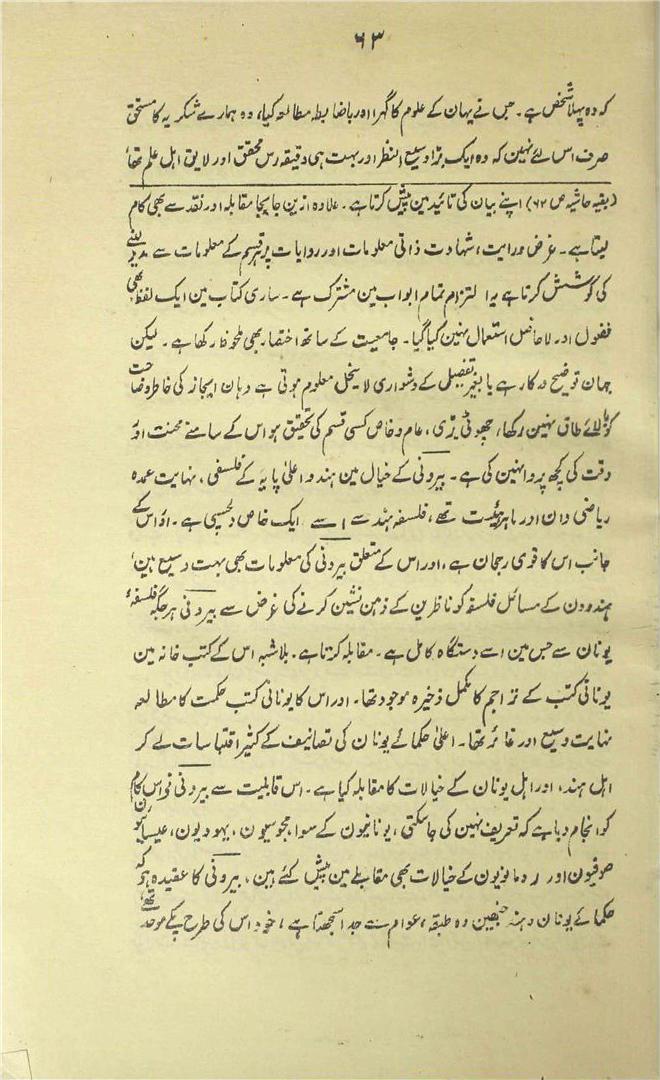 ۶۳
کہ وہ پہلا شخص ہے۔ جس نے یہان کے علوم کا گہرا اور باضابطہ مطالعہ کیا، وہ ہمارے شکریہ کا مستحق
صرف اس لئے نہین کہ وہ ایک بڑا وسیع النظر اور بہت ہی دقیقہ رس محقق اور لایق اہل علم تھا
(بقیہ حاشیہ ص ۶۲) اپنے بیان کی تائید مین پیش کرتا ہے۔ علاوہ ازین جابجا مقابلہ اور نقد سے بھی کام
لیتا ہے۔ غرض درایت، شہادت ذاتی معلومات اور روایات ہر قسم کے معلومات سے مدد لینے
کی کوشش کرتا ہے یہ التزام تمام ابواب مین مشترک ہے۔ ساری کتاب مین ایک لفظ بھی
فضول اور لاحاصل استعمال نہین کیا گیا۔ جامعیت کے ساتھ اختصار بھی ملحوظ رکھا ہے۔ لیکن
جہان توضیح درکار ہے یا بغیر تفصیل کے دشواری لاینحل معلوم ہوتی ہے وہان ایجاز کی خاطر وضاحت
کو بالائے طاق نہین رکھا، چھوٹی بڑی، عام و خاص کسی قسم کی تحقیق ہو اس کے سامنے محنت اور
دقت کی کچھ پروا نہین کی ہے۔ بیرونی کے خیال مین ہندو اعلیٰ پایہ کے فلسفی، نہایت عمدہ
ریاضی دان اور ماہر ہیئت تھے، فلسفہ ہند سے اسے ایک خاص دلچسپی ہے۔ اور اس کے
جانب اس کا قوی رجحان ہے، اور اس کے متعلق بیرونی کی معلومات بھی بہت وسیع ہین،
ہندوون کے مسائل فلسفہ کو ناظرین کے ذہن نشین کرنے کی غرض سے بیرونی ہر جگہ فلسفۂ
یونان سے جس مین اسے دستگاہ کامل ہے۔ مقابلہ کرتا ہے۔ بلاشبہ اس کے کتب خانہ مین
یونانی کتب کے تراجم کا مکمل ذخیرہ موجود تھا۔ اور اس کا یونانی کتب حکمت کا مطالعہ
نہایت وسیع اور غائر تھا۔ اعلیٰ حکمائے یونان کی تصانیف کے کثیر اقتباسات لے کر
اہل ہند، اور اہل یونان کے خیالات کا مقابلہ کیا ہے۔ اس قابلیت سے بیرونی نے اس کام
کو انجام دیا ہے کہ تعریف نہین کی جاسکتی، یونانیون کے سوا، مجوسیون، یہودیون، عیسائیون
صوفیون اور مانویون کے خیالات بھی مقابلے مین پیش کئے ہین، بیرونی کا عقیدہ ہے کہ
حکمائے یونان و ہند جنھین وہ طبقہ عوام سے جدا سمجھتا ہے، خود اس کی طرح پکے موحد تھے